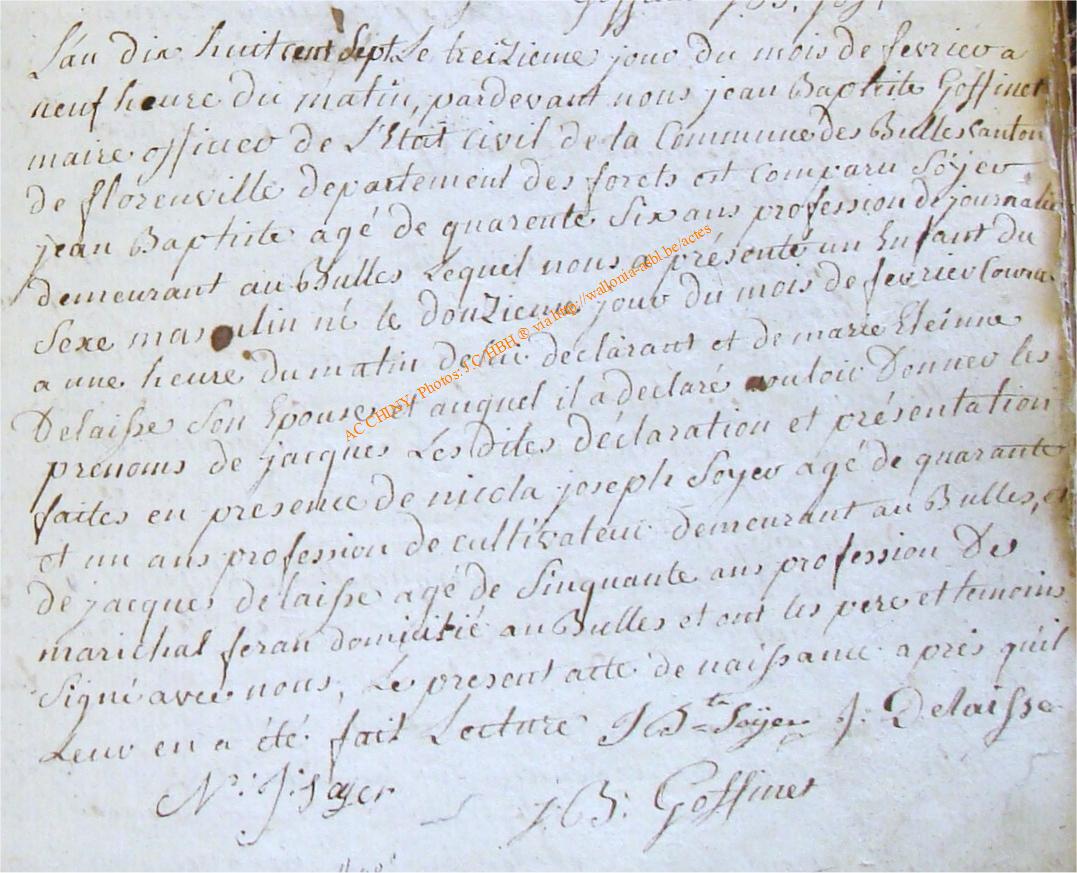 Goffinet J. B. Soy
L'an dix huit cent Sept Le treizieme jour du mois de fevrier a
neuf heure du matin, pardevant nous jean Baptiste Goffinet
maire officier de L'Etat Civil de la Commune des Bulles Canton
de florenville departement des forets est Comparu Soÿer
jean Baptiste agé de quarente Six ans profession de journalie
demeurant au Bulles Lequel nous a présenté un Enfant du
Sexe masculin né le douzieme jour du mois de fevrier Courra
a une heure du matin de lui declarant et de marie Eleinne
Delaisse Son Epouse et auquel il a declaré vouloir Donner les
prenoms de jacques Les Dites déclaration et présentation
faites en presence de nicola joseph Soÿer agé de quarante
et un ans profession de cultivateur demeurant au Bulles, et
de jacques delaisse agé de Sinquante ans profession Des
marichal feran domicitié au Bulles et ont les pere et temoins
Signé avec nous, Le present acte de naissance apres qu'il
Leur en a été fait Lecture J Bte Soÿer J: Delaisse
N: J: Soyer
J: B: Goffinet
ACCHDSY Photos: J.C HBH ® via http://wallonia-asbl.be/actes